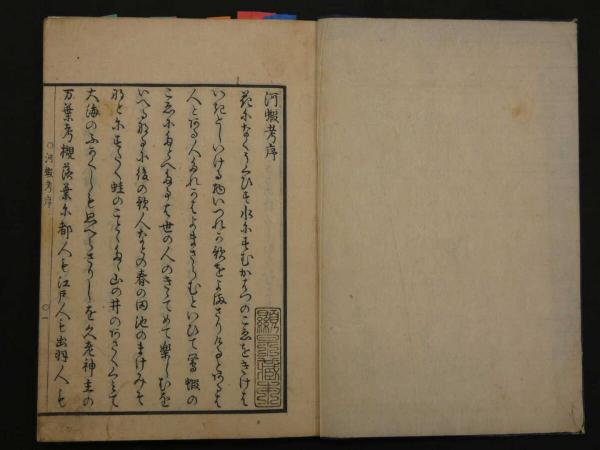 河蝦考序
花になくうぐひす水にすむかはつのこゑをきけは
いきとしいける物いつれか歌をよまさりけるとあるは
人とある人たれかはよまさらむといひて鶯蝦の
こゑにたとへたるは世の人のきゝてめて楽しむを
いへるなるに後の歌人なとの春の田池の
なとにすたく蛙のことゝ山の井の
大海のふかくしも思へらさりしを久老神主の
万葉考槻落葉に都人も江戸人も出羽人も
○河蝦考序
○一